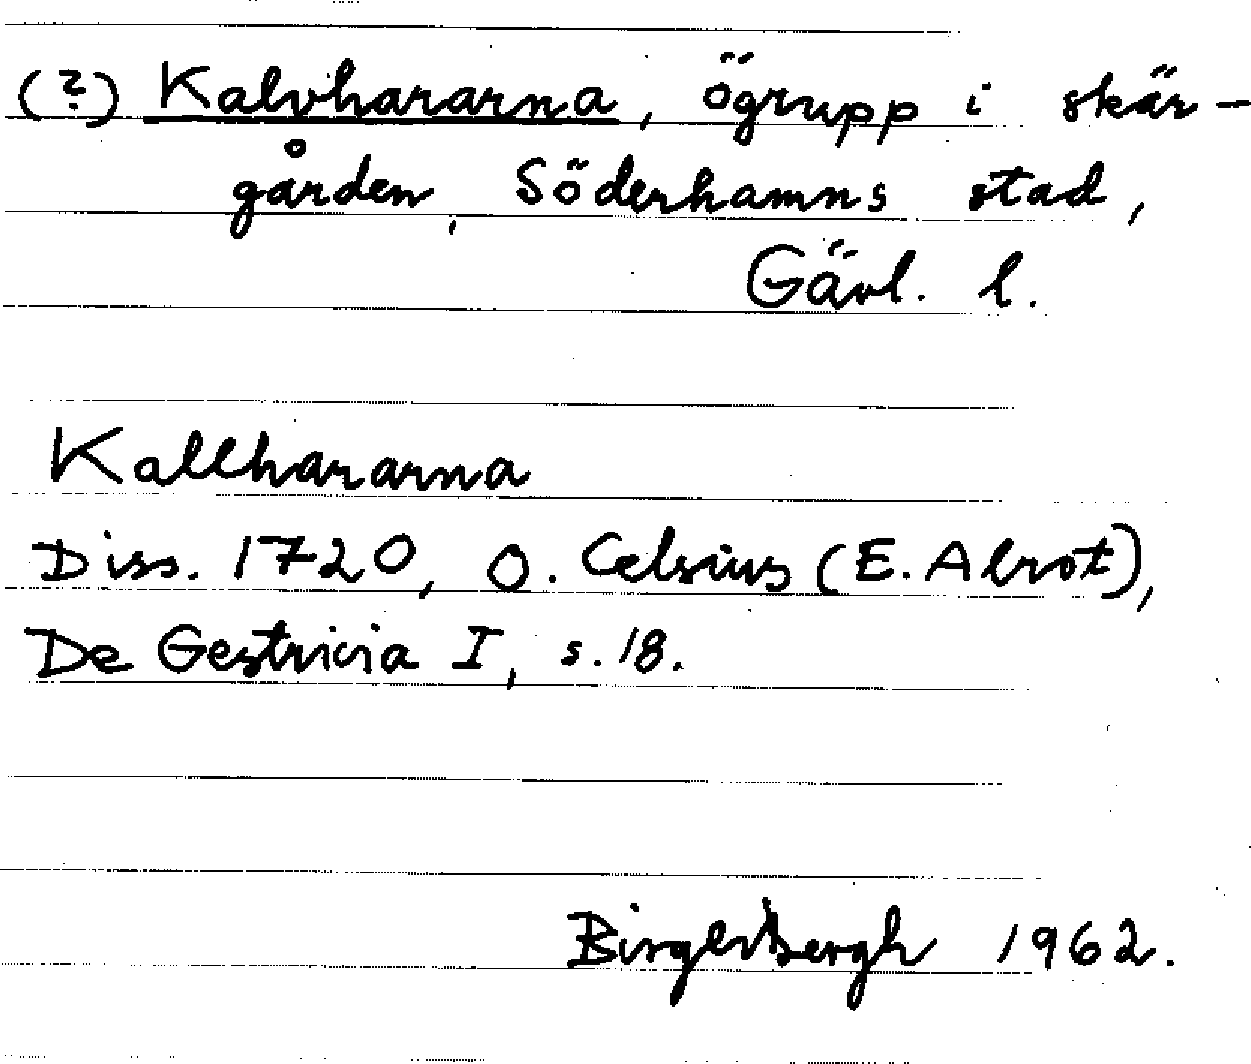 (?) Kalvhararna, ögrupp i skär-
gården, Söderhamns stad,
Gävl. l.
Kallhararna
Diss. 1720, O. Celsius (E. Alrot),
De Gestricia I, s. 18.
Birger Bergh 1962.